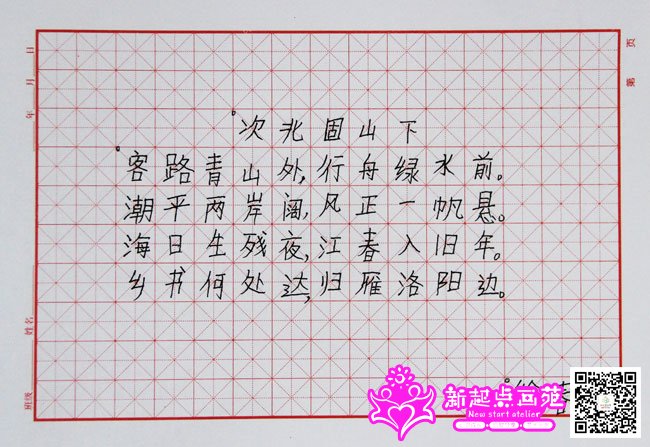 次北固山下
客路青山外,行舟绿水前。
潮平两岸阔,风正一帆悬。
海日生残夜,江春入旧年。
乡书何处达,归雁洛阳边。
年 月 日
第 页
班级 姓名
新起点画苑
New start atelier